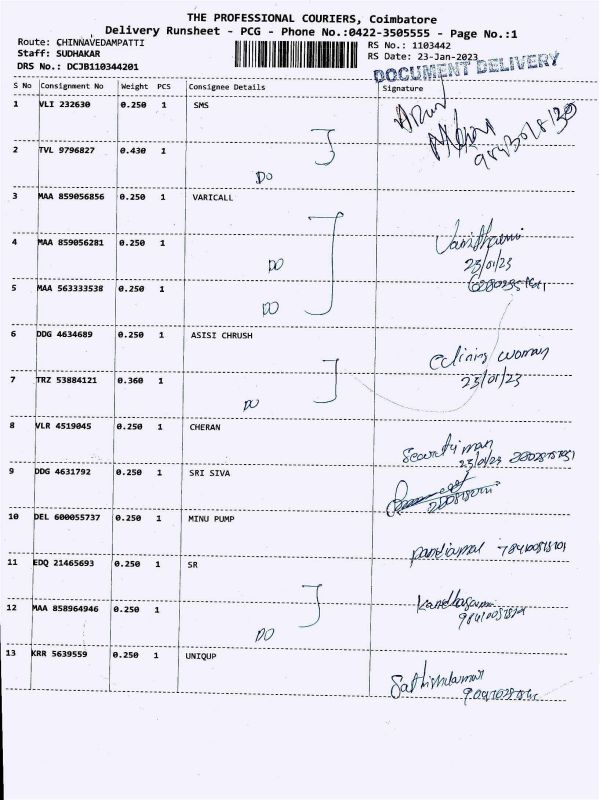 THE PROFESSIONAL COURIERS, Coimbatore
Delivery Runsheet - PCG - Phone No.:0422-3505555 - Page No.:1
Route: CHINNAVEDAMPATTI
RS No.: 1103442
Staff: SUDHAKAR
RS Date: 23-Jan-2023
DRS No.: DCJB110344201
DOCUMENT DELIVERY
S No Consignment No Weight PCS Consignee Details Signature
1 VLI 232630 0.250 1 SMS
2 TVL 9796827 0.430 1
DO
3 MAA 859056856 0.250 1 VARICALL
4 MAA 859056281 0.250 1
DO
23/01/23
5 MAA 563333538 0.250 1
DO
6 DDG 4634689 0.250 1 ASISI CHRUSH
woman
7 TRZ 53884121 0.360 1
23/01/23
DO
8 VLR 4519045 0.250 1 CHERAN
man
23/01/23
9 DDG 4631792 0.250 1 SRI SIVA
10 DEL 600055737 0.250 1 MINU PUMP
11 EDQ 21465693 0.250 1 SR
12 MAA 858964946 0.250 1
DO
13 KRR 5639559 0.250 1 UNIQUP